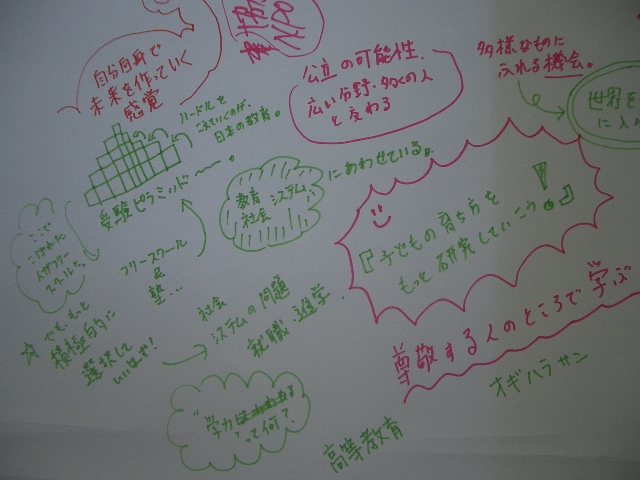 自分自身で
未来を作っていく
感覚
NPO
公立の可能性.
広い分野・多くの人
と交わる
多様なものに
ふれる機会。
世界を
ハードルを
日本の教育。
受験ピラミッド〜。
教育
社会 システム
にあわせている。
ここで
フリースクール
&
塾…
でも、もっと
積極的に
選択して
いいはず!
社会
システムの問題
就職・進学.
『子どもの育ち方を
もっと研究していこう!』
尊敬する人のところで学ぶ
オギハラサン
"学力
って何?
高等教育